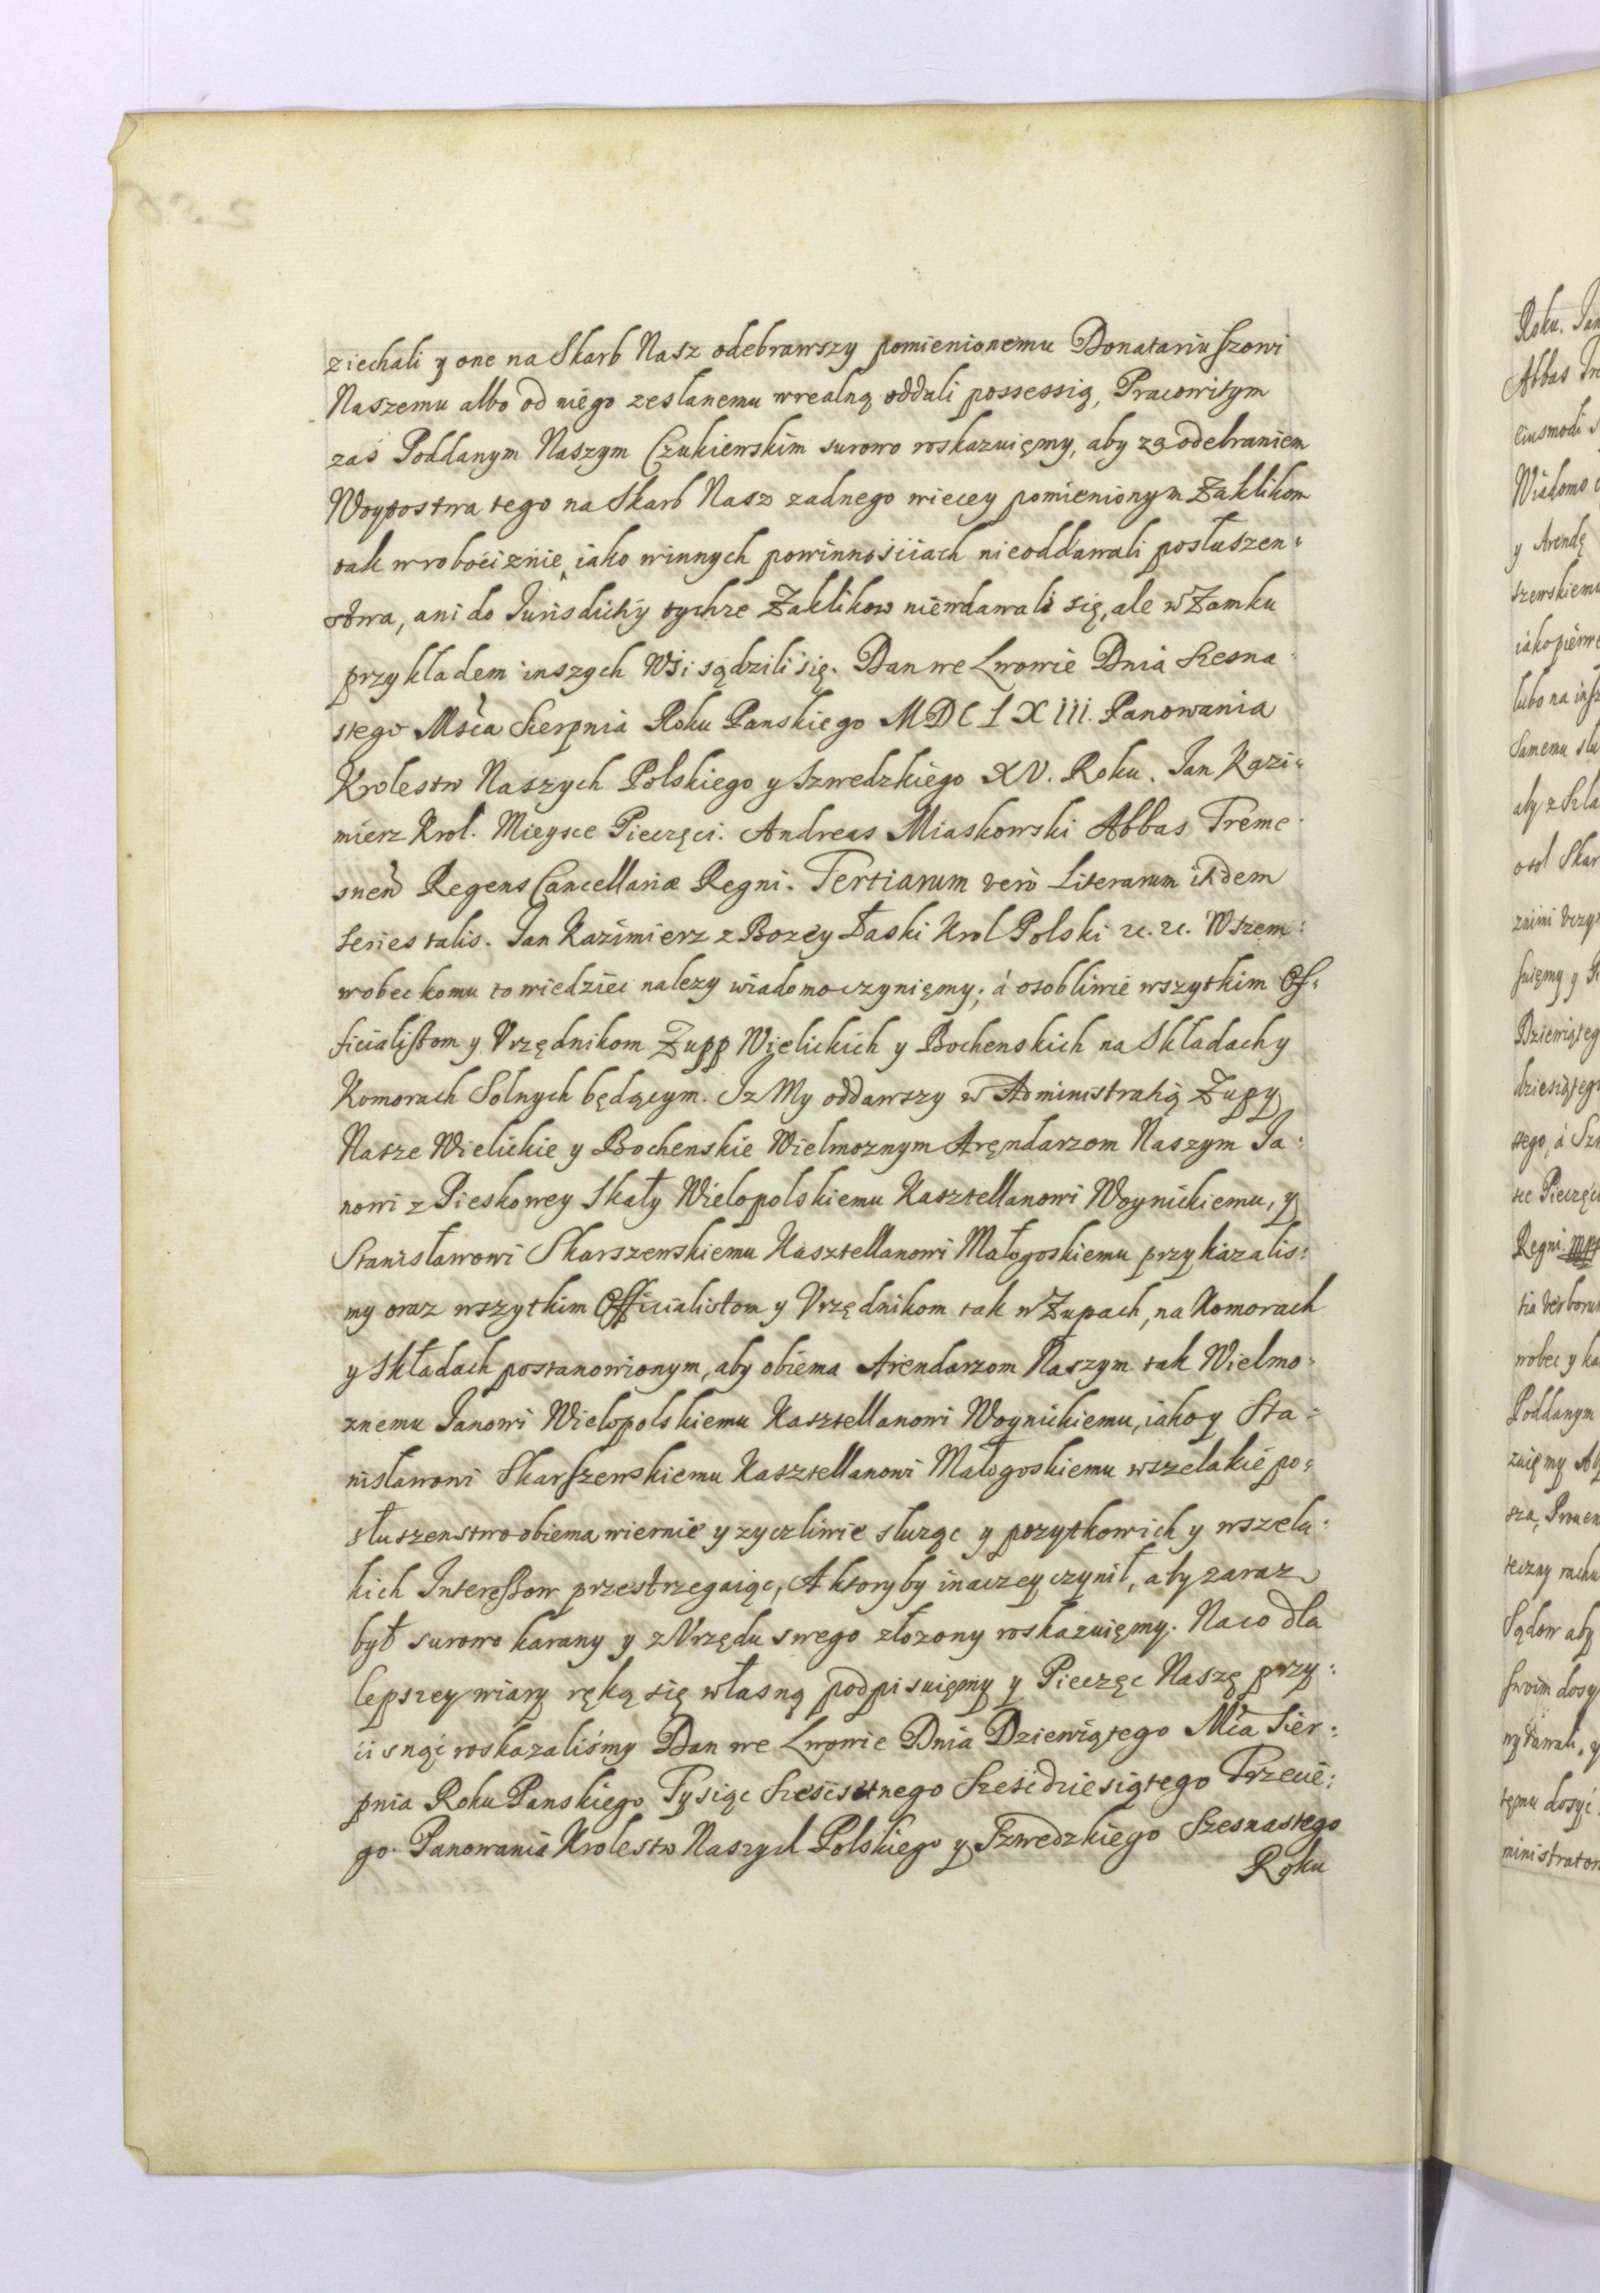 ziechali y one na Skarb Nasz odebrawszy pomienionemu Donatariuszowi
Naszemu albo od niego zesłanemu wrealną oddali possessią, Pracowitym
zaś Poddanym Naszym Czukiewskim surowo roskazuięmy, aby za odebraniem
Woytostwa tego na Skarb Nasz zadnego wiecey pomienionym Zaklikom
tak wrobociznie, iako winnych powinnościach nieoddawali posłuszen=
stwa, ani do Jurisdictiy tychze Zaklikow niewdawali się, ale w Zamku
przykładem inszych Wsi sądzili się. Dan we Lwowie Dnia Szesna=
stego Msca Sierpnia Roku Panskiego MDCLXIII. Panowania
Krolestw Naszych Polskiego y Szwedzkiego XV. Roku. Jan Kazi=
mierz Krol. Mieysce Pieczęci. Andreas Miaskowski Abbas Treme=
snen Regens Cancellariæ Regni. Tertiarum verò Literarum itidem
series talis. Jan Kazimierz z Bozey Łaski Krol Polski &c. &c. Wszem=
wobec komu to wiedziec nalezy wiadomo czynięmy; á osobliwie wszytkim Of=
ficialistom y Vrzędnikom Zupp Wielickich y Bochenskich na Składach y
Komorach Solnych będącym. Iz My oddawszy w Administratią Zupy
Nasze Wielickie y Bochenskie Wielmoznym Aręndarzom Naszym Ja=
nowi z Pieskowey Skały Wielopolskiemu Kasztellanowi Woynickiemu, y
Stanisławowi Skarszewskiemu Kasztellanowi Małogoskiemu przykazalis=
my oraz wszytkim Officialistom y Vrzędnikom tak w Zupach, na Komorach
y Składach postanowionym, aby obiema Arendarzom Naszym tak Wielmo=
znemu Janowi Wielopolskiemu Kasztellanowi Woynickiemu, iako y Sta=
nisławowi Skarszewskiemu Kasztellanowi Małogoskiemu wszelakie po=
słuszenstwo obiema wiernie y zyczliwie słuząc y pozytkow ich y wszela=
kich Interessow przestrzegaiąc, A ktoryby inaczey czynił, aby zaraz
był surowo karany y z Vrzędu swego złozony roskazuięmy. Naco dla
lepszey wiary ręką się własną podpisuięmy y Pieczęc Naszę przy=
cisnąć roskazaliśmy Dan we Lwowie Dnia Dziewiątego Mca Sier=
pnia Roku Panskiego Tysiąc Sześćsetnego Sześćdziesiątego Trzecie=
go. Panowania Krolestw Naszych Polskiego y Szwedzkiego Szesnastego
Roku